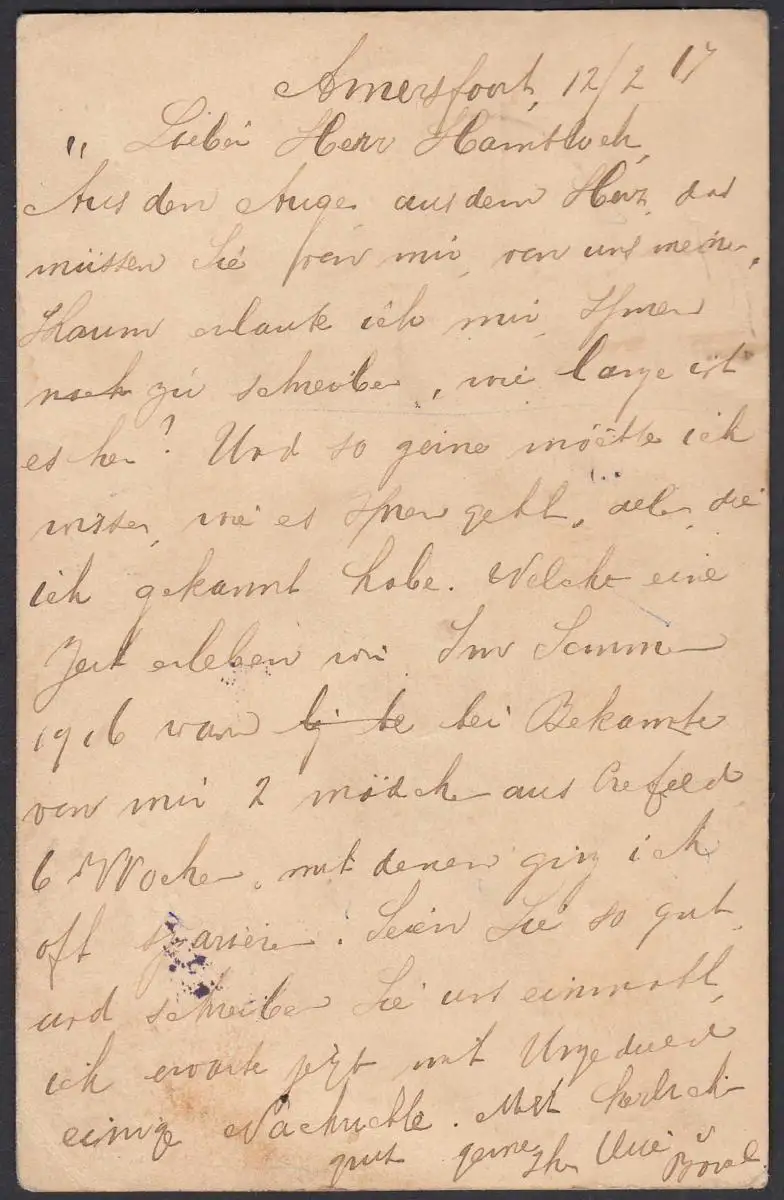 Amersfoort, 12/2 17
" Lieber Herr
Aus den Auge aus dem Herz, das
müssen Sie von mir, von uns meinen,
Kaum erlaube ich mir Ihnen
noch zu schreiben, wie lange ist
es her? Und so gerne möchte ich
wissen, wie es Ihnen geht, die
ich gekannt habe. Welche eine
Zeit erleben wir Im Sommer
1916 waren bei Bekannte
von mir 2 mädchen aus Crefeld
6 Wochen, mit denen ging ich
oft spazieren. Seien Sie so gut
und schreiben Sie uns einmahl,
ich erwarte jetzt mit Ungeduld
einige Nachrichte. Mit herlich
Ihr